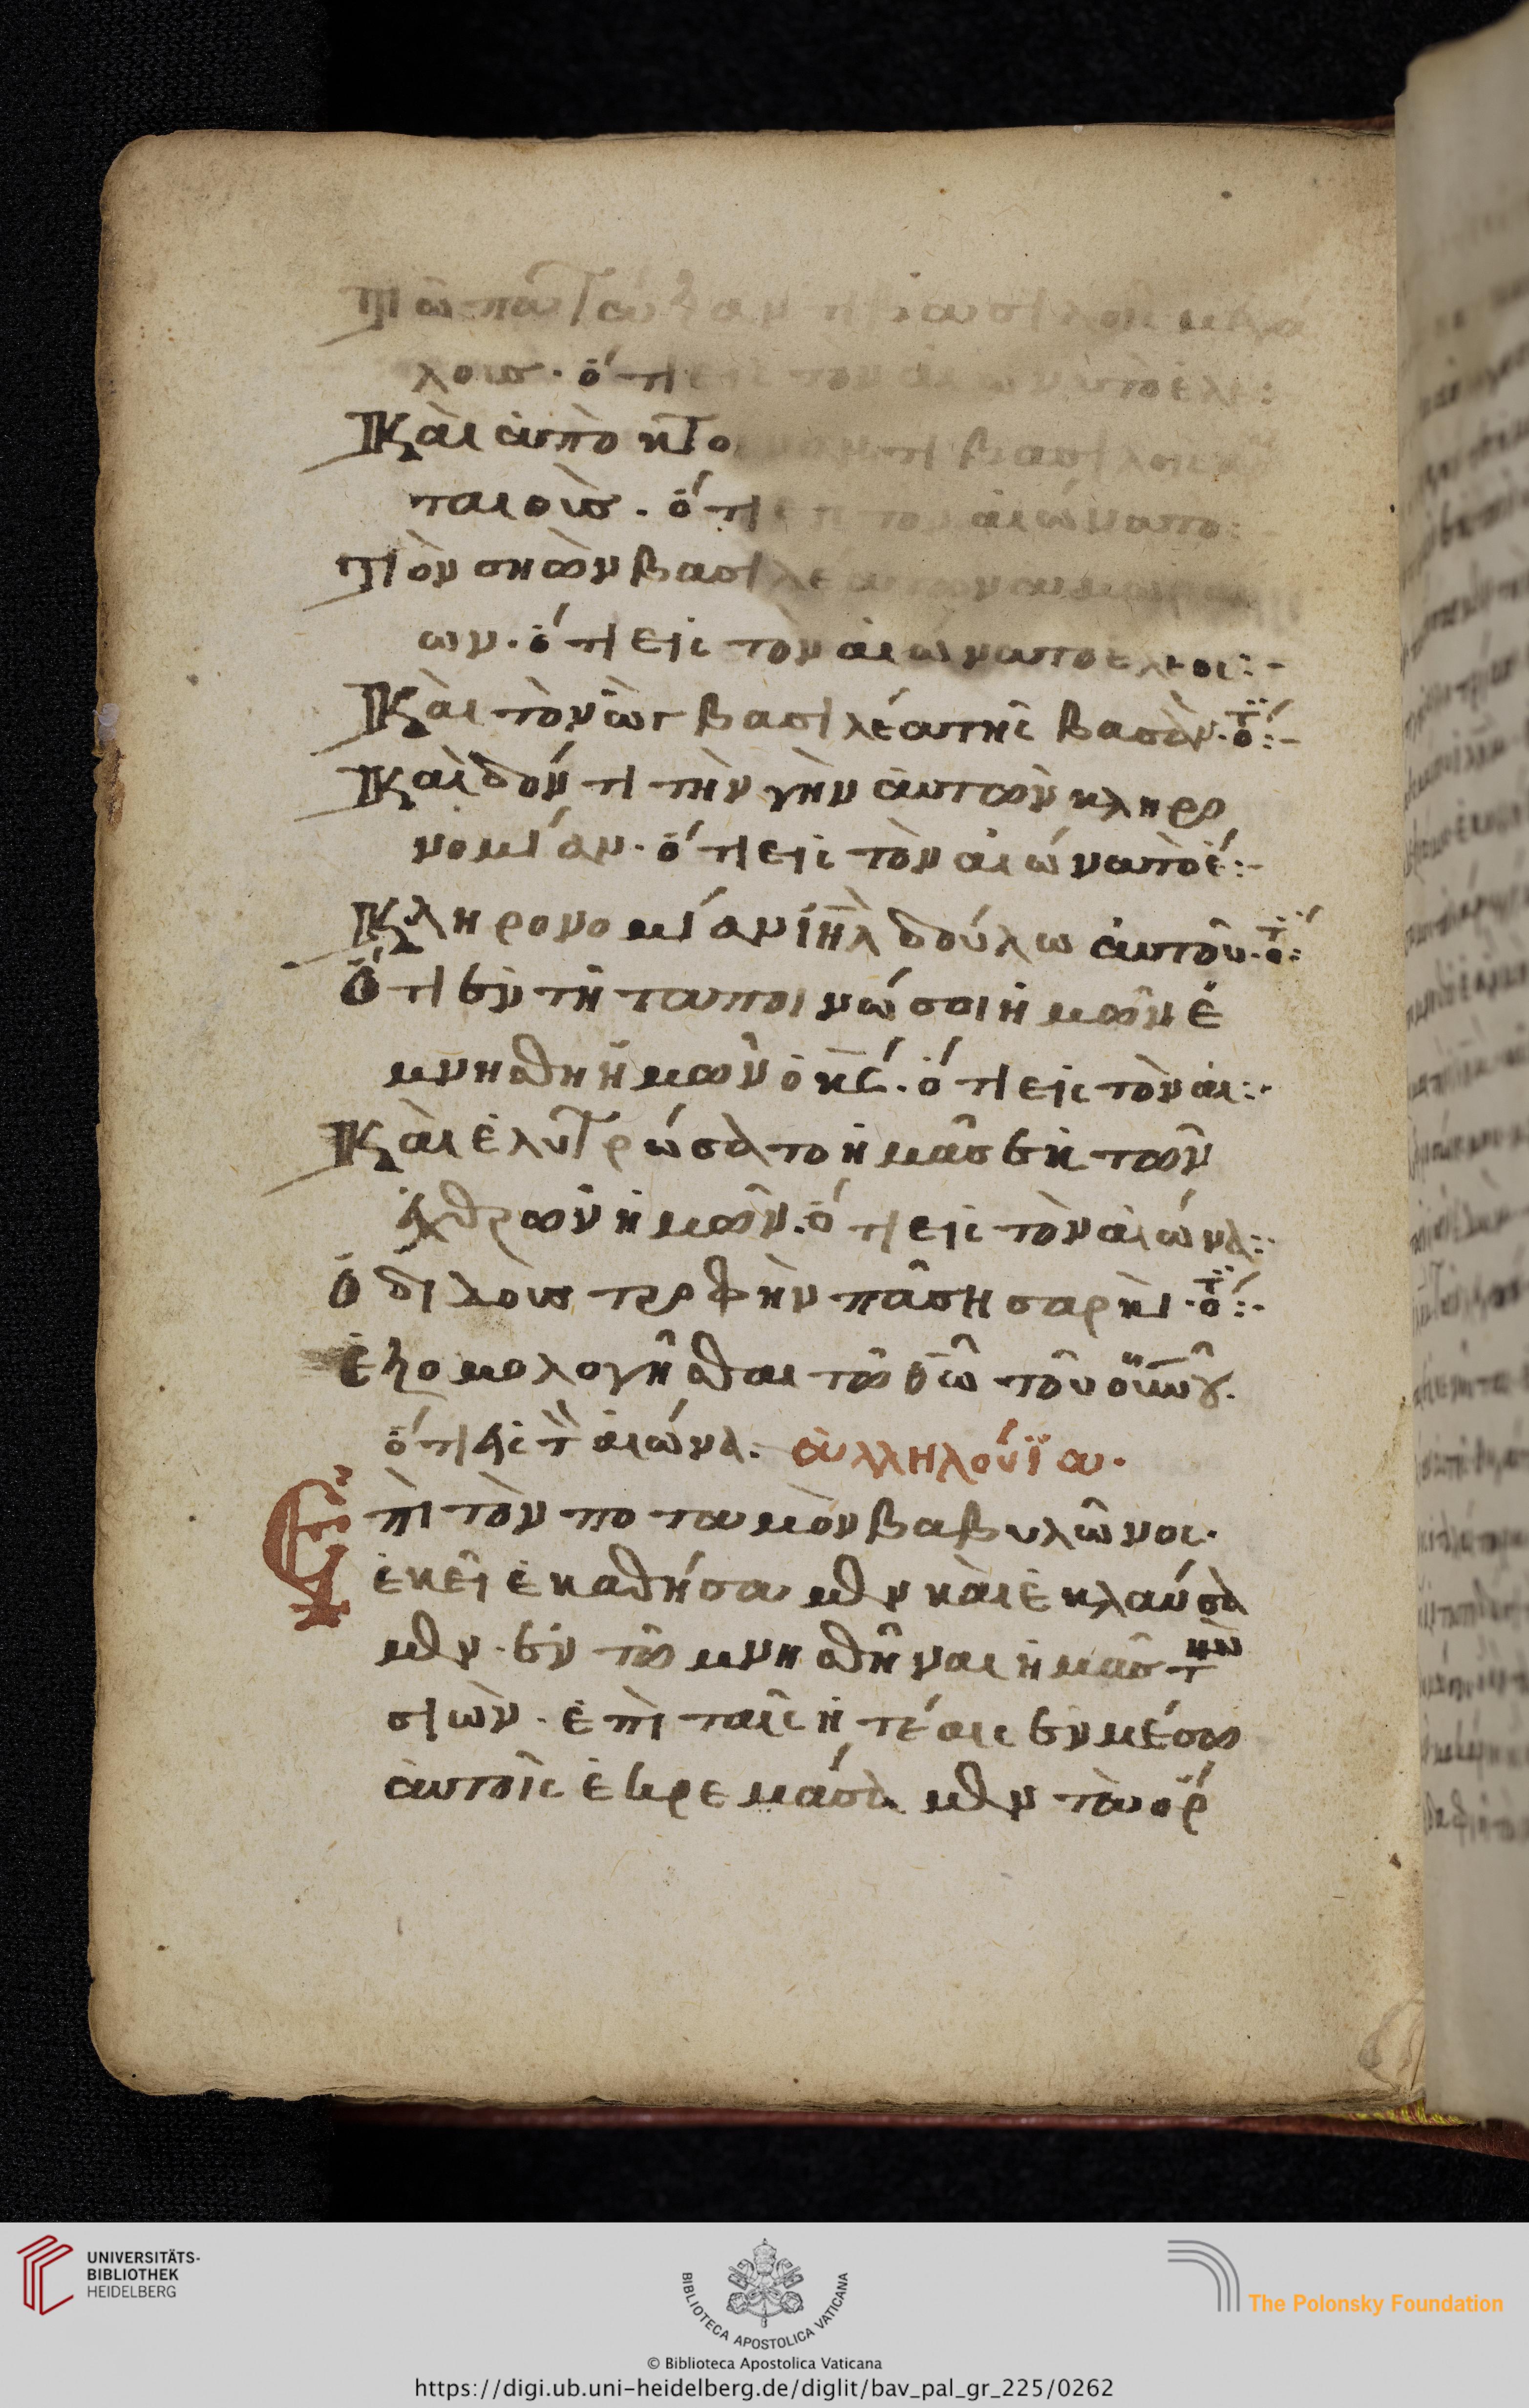 Τῶ πατάξαντι βασιλεῖς μεγά
λους · ὅτι εἰς τὸν αἰῶνα τὸ ἔλε:
Καὶ ἀπὸκτ
ταιοὺς · ὅτι εἰς τὸν αἰῶνα το:
Τὸν σηὼν βασιλέα τῶν ἀμορραί
ων · ὅτι εἰς τὸν αἰῶνα τὸ ἔλεος:-
Καὶ τὸν ὢγ βασιλέα τῆς βασάν · ὅτ:-
Καὶ δόντι τὴν γὴν αὐτὼν κληρο
νομίαν · ὅτι εἰς τὸν αἰώνα τὸ ἔ:-
Κληρονομίαν ἰη̅λ δούλω αὐτοῦ · ὅτ:
Ὅτι ἐν τῆ ταποινώσοι ἡμῶν ἐ
μνήσθη ἡμῶν ὁ κ̅ς · ὅτι εἰς τὸν αἰ:-
Καὶ ἐλυτρώσατο ἡμᾶς ἐκ τῶν
ἐχθρῶν ἡμῶν · ὅτι εἰς τὸν αἰώνα:-
Ὁ διδοὺς τροφὴν πᾶση σαρκὶ · ὅτ:-
Ἐξομολογῆσθαι τῶ θ̅ω τοῦ οὐ̅νου ·
ὅτι εἰς τ̀ αἰώνα. ἀλληλούϊα ·
Ἐπὶ τὸν ποταμὸν βαβυλῶνος ·
ἐκεῖ ἐκαθήσαμεν καὶ ἐκλαύσα
μεν · ἐν τῶ μνησθῆναι ἡμᾶς τὴν
σιὼν · ἐπὶ ταῖς ἠτέαις ἐν μέσω
αὐτοῖς ἐκρεμάσαμεν τὰ ὄρ
UNIVERSITÄTS-
BIBLIOTHEK
HEIDELBERG
BIBLIOTECA APOSTOLICA VATICANA
The Polonsky Foundation
© Biblioteca Apostolica Vaticana
https://digi.ub.uni-heidelberg.de/diglit/bav_pal_gr_225/0262